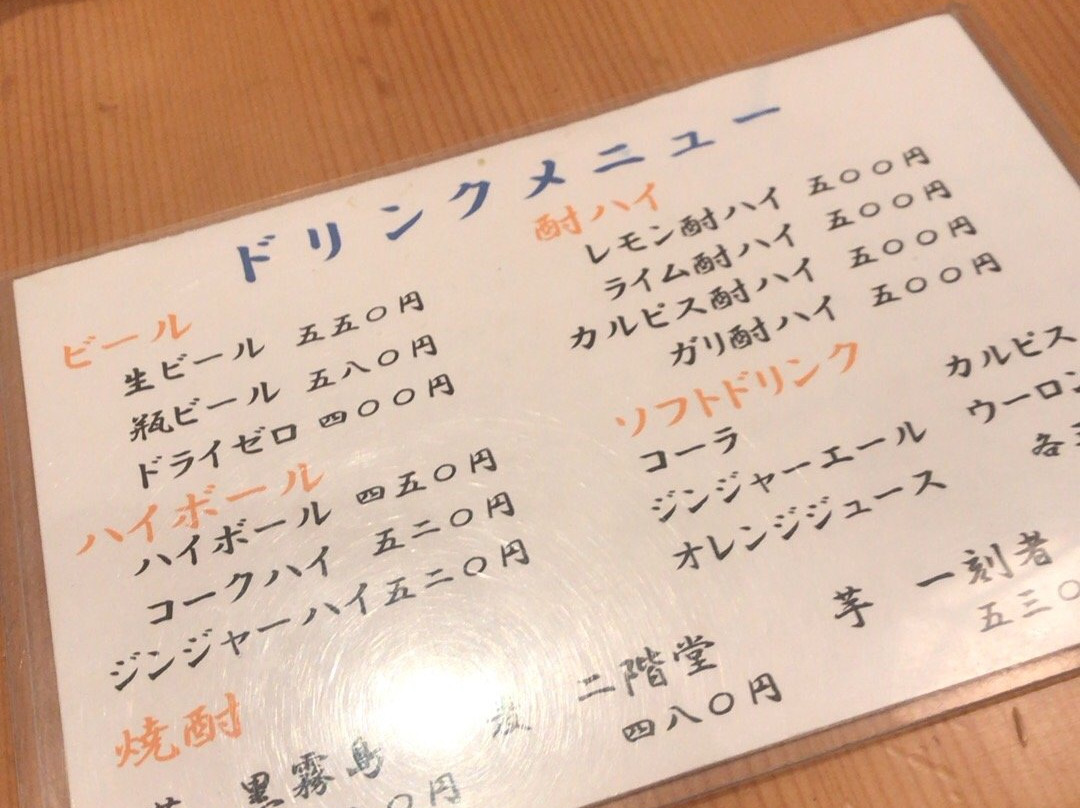 ドリンクメニュー
ビール
生ビール 五五〇円
瓶ビール 五八〇円
ドライゼロ 四〇〇円
ハイボール
ハイボール 四五〇円
コークハイ 五二〇円
ジンジャーハイ 五二〇円
酎ハイ
レモン酎ハイ 五〇〇円
ライム酎ハイ 五〇〇円
カルピス酎ハイ 五〇〇円
ガリ酎ハイ 五〇〇円
ソフトドリンク
コーラ カルピス
ジンジャーエール ウーロン
オレンジジュース 各
焼酎
黒霧島
〇円
二階堂
四八〇円
芋 一刻者
五三〇